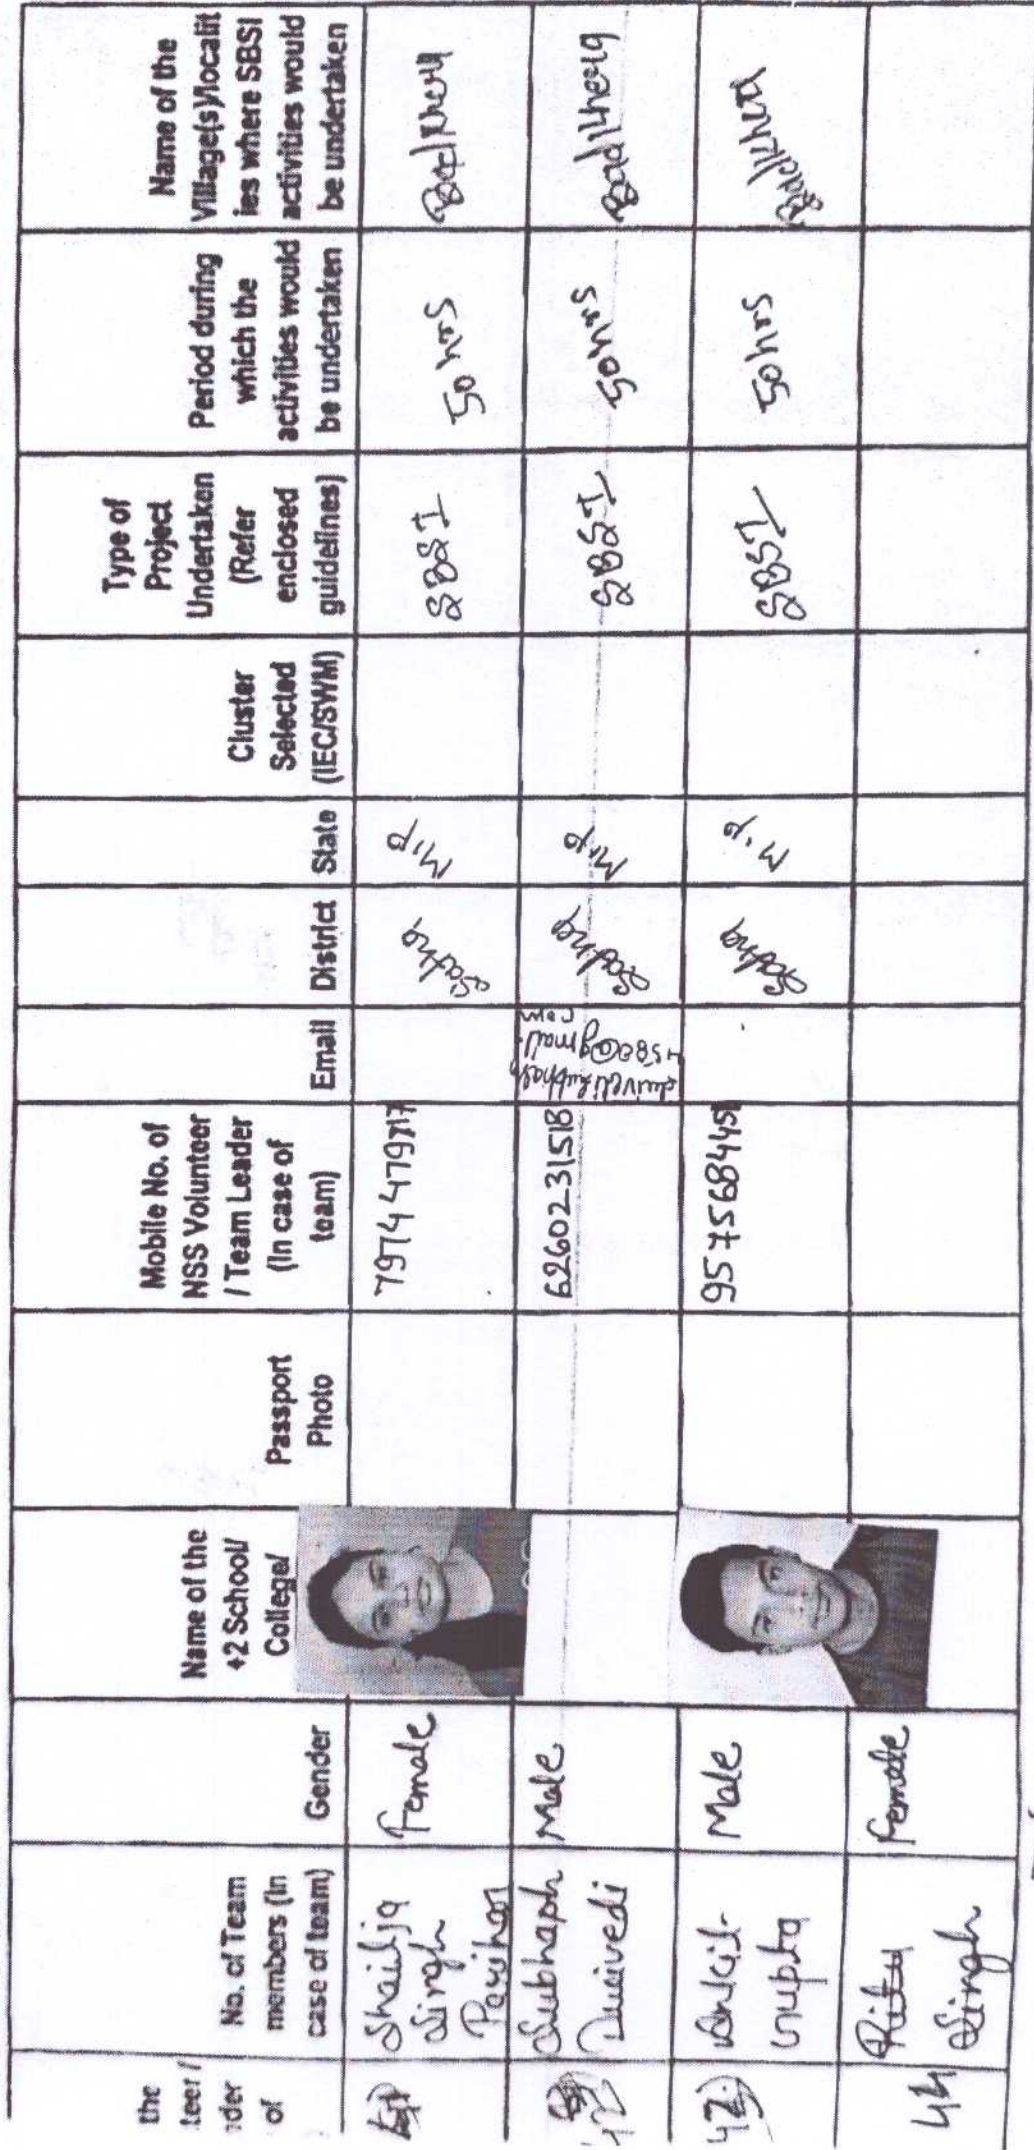 the
teer /
der
of
No. of Team
members (In
case of team)
Gender
Name of the
+2 School/
College/
Passport
Photo
Mobile No. of
NSS Volunteer
/ Team Leader
(In case of
team)
Email
District
State
Cluster
Selected
(IEC/SWM)
Type of
Project
Undertaken
(Refer
enclosed
guidelines)
Period during
which the
activities would
be undertaken
Name of the
Village(s)/localit
ies where SBSI
activities would
be undertaken
Shailja
Singh
Parihar
Female
Satna
M.P
SBSI
50 hrs
Subhash
Dwivedi
Male
6260231518
@gmail.
com
Satna
M.P
SBSI
50 hrs
Ankit
Gupta
Male
Satna
M.P
SBSI
50 hrs
44
Ritu
Singh
Female